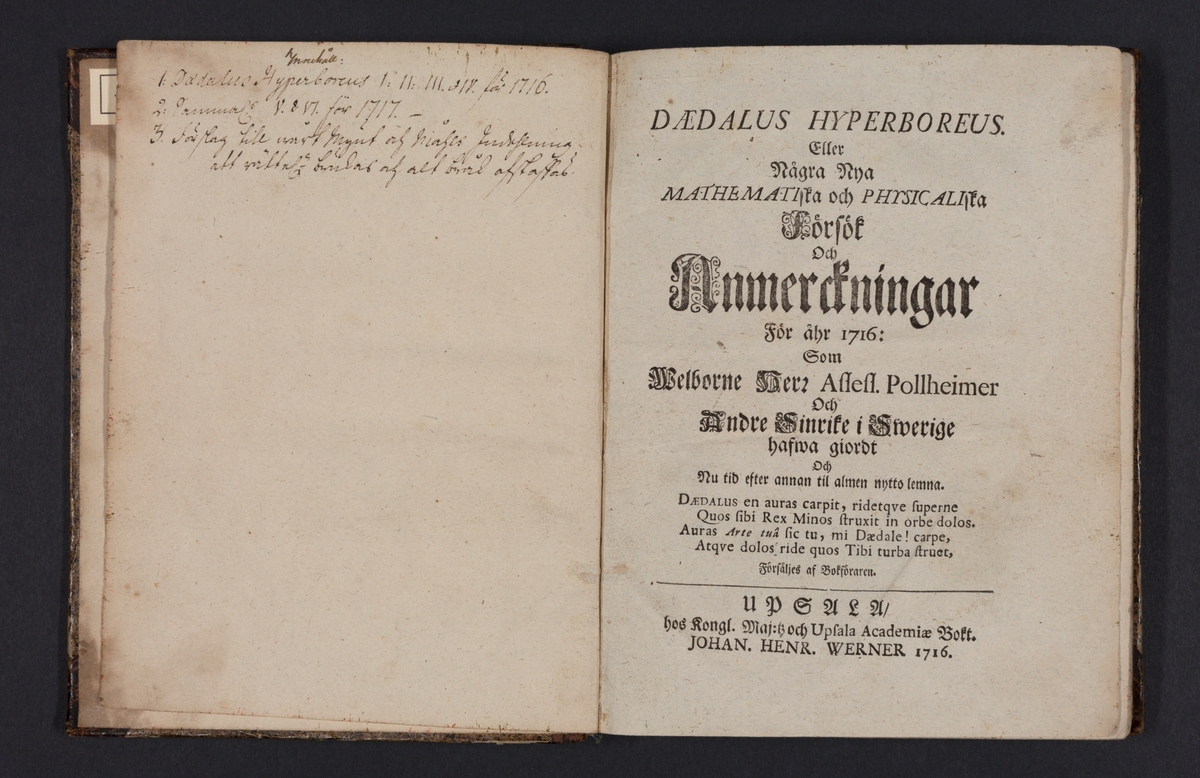 Innehåll:
1. Dædalus Hyperboreus I. II. III. & IV. för 1716.
2. V. & VI. för 1717. –
3. Förslag till wårt Mynt och Måhls Indelning
att brukas och alt bråk afskaffas.
DÆDALUS HYPERBOREUS.
Eller
Några Nya
MATHEMATIſka och PHYSICALIſka
Förſök
Och
Anmerckningar
För åhr 1716:
Som
Welborne Herr Aſſeſſ. Pollheimer
Och
Andre Sinrike i Swerige
hafwa giordt
Och
Nu tid efter annan til almen nytto lemna.
DÆDALUS en auras carpit, ridetqve ſuperne
Quos ſibi Rex Minos ſtruxit in orbe dolos.
Auras Arte tuâ ſic tu, mi Dædale! carpe,
Atqve dolos ride quos Tibi turba ſtruet,
Förſäljes af Bokföraren.
UPSALA/
hos Kongl. Maj:tz och Upſala Academiæ Bokt.
JOHAN. HENR. WERNER 1716.